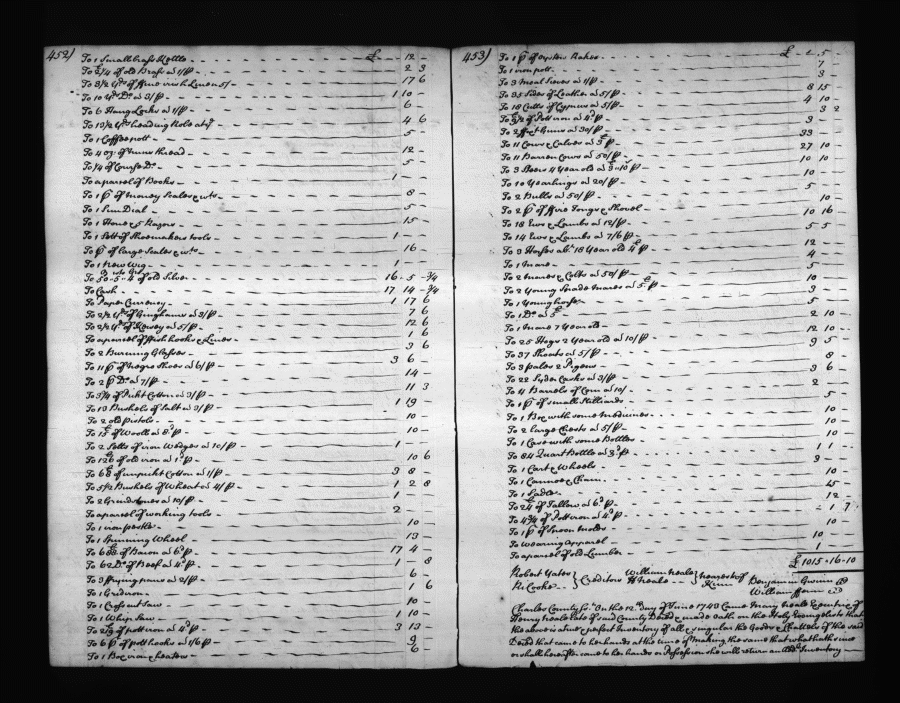 452)
To 1 Small brass Kettle £ - 12 -
To 5 1/4 of old Brass a 1/P - 2 3
To 3 1/2 Yds of fine Irish Linen 5/ 17 6
To 10 Yds Do a 3/P 1 10 -
To 6 Hang Locks a 1/P 6 -
To 13 1/2 Yds 4 6
To 1 Coffee pott 5 -
To 4 oz of thread 12 -
To 1/4 of Course Do 5 -
To a parcel of Books 1 - -
To 1 P of money Scales & wts 8 -
To 1 Sun Dial 5 -
To 1 Hone & 5 Razors 15 -
To 1 Sett of Shoemakers tools 1 - -
To 1 P of large Scales & wts 16 -
To 1 New Wig 1 - -
To 50 - 5 - 4 of old Silver 16 - 5 - 3/4
To Cash 17 14 - 3/4
To Paper Currency 1 17 6
To 2 1/2 Yds of Gingham a 3/P 7 6
To 2 1/2 Yds of Kersey a 5/P 12 6
To a parcel of fish hooks & Lines 1 6
To 2 Burning Glasses 3 6
To 11 P of negro Shoes a 6/P 3 6 -
To 2 P Do a 7/P 14 -
To 3 3/4 of Pickt Cotton a 3/P 11 3
To 13 Bushels of Salt a 3/P 1 19 -
To 2 old Pistols 10 -
To 15 of Wooll a 8d P 10 -
To 2 Setts of iron Wedges a 10/P 1 - -
To 126 of old iron a 1d P 10 6
To 68 of unpickt Cotton a 1/P 3 8 -
To 5 1/2 Bushels of Wheat a 4/P 1 2 8
To 2 Grindstones a 10/P 1 - -
To a parcel of working tools 2 - -
To 1 iron pestle
To 1 Spinning Wheel 13 -
To 688 of Bacon a 6d P 17 4 -
To 62 Do of Beef a 4d P 1 - 8
To 3 frying pans a 2/P 6 -
To 1 Gridiron 1 6
To 1 Crosscut Saw 10 -
To 1 Whip Saw 1 10 -
To 219 of pott iron a 4d P 3 13 -
To 6 P of pott hooks a 1/6 P 9 -
To 1 Box iron & heaters 6 -
453)
To 1 P of oyster Rakes £ - 2 5 -
To 1 iron pott 7
To 3 Meal Sieves a 1/P 3
To 35 Sides of Leather a 5/P 8 15
To 18 Cutts of Cyprus a 5/P 4 10 -
To 9 1/2 of Pott iron a 4d P 3 2
To 2 Guns a 30/P 3 -
To 11 Cows & Calves a 3 P 33
To 11 Barren Cows a 50/P 27 10
To 3 Steers 4 Year old a 3-10 P 10 10
To 10 Yearlings a 20/P 10 -
To 2 Bulls a 50/P 5 -
To 2 P of fire Tongs & Shovel 10
To 18 Ews & Lambs a 12/P 10 16
To 14 Ews & Lambs a 7/6 P 5 5
To 3 Horses abt 18 Year old 4 P 12
To 1 Mare 4
To 2 Mares & Colts a 50/P 5 -
To 2 Young Spade Mares a 5 P 10
To 1 Young horse 3
To 1 Do a 5 5
To 1 Mare 7 Year old 2 10
To 25 Hogs 2 Year old a 10/P 12 10
To 37 Shoats a 5/P 9 5
To 3 pales 2 Pigons 8
To 22 Syder Casks a 3/P 3 6
To 4 Barrels of Corn a 10/ 2
To 1 P of small Stilliards 5 -
To 1 Box with some Medicines 10
To 2 large Chests a 5/P 10 -
To 1 Case with some Bottles 10 -
To 84 Quart Bottles a 3d P 1 1
To 1 Cart & Wheels 3 -
To 1 Cannoe & Chain 10 -
To 1 Sadle 15
To 24 of Tallow a 6d P 12
To 4 3/4 of Pott iron a 4d P - 1 7
To 1 P of Spoon molds 10
To Wearing apparel 10 -
To a parcel of old Lumber 1 -
£ 1015 - 16 - 10
Robert Yates } Creditors William Neale } nearest of Benjamin Gwinn
R Cooke H Neale Kinn William
Charles County Ss. On the 12th Day of June 1743 Came Mary Neale Executrix of
Henry Neale late of said County Deced & made oath on the Holy Evangelists that
the above is a true & perfect Inventory of all & singular the Goods & Chattels of the said
Deced that came to her hands at the time of Making the same that what hath since
or shall hereafter come to her hands or Possession she will return an Addl Inventory